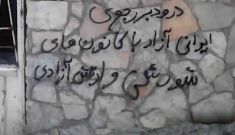 درود بر رجوی
ایرانی آزاد با کانون‌های
شورشی و ارتش آزادی